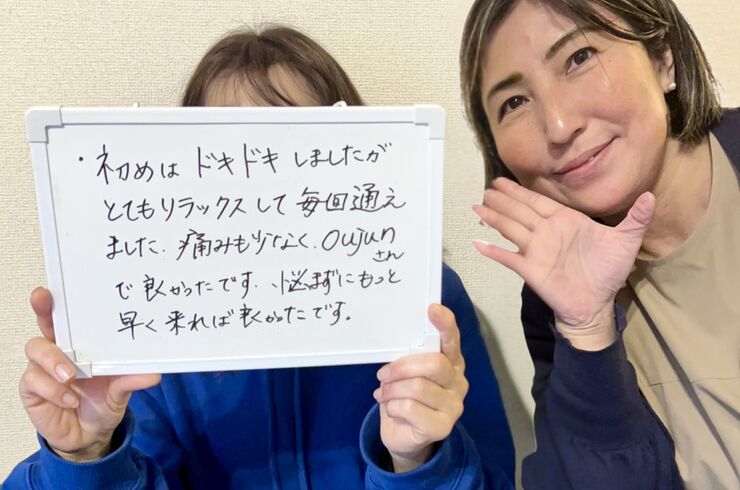 ・初めは ドキドキ しましたが
とてもリラックスして毎回通え
ました。痛みも少なく、Oujun
さん
で良かったです。悩まずにもっと
早く来れば良かったです。